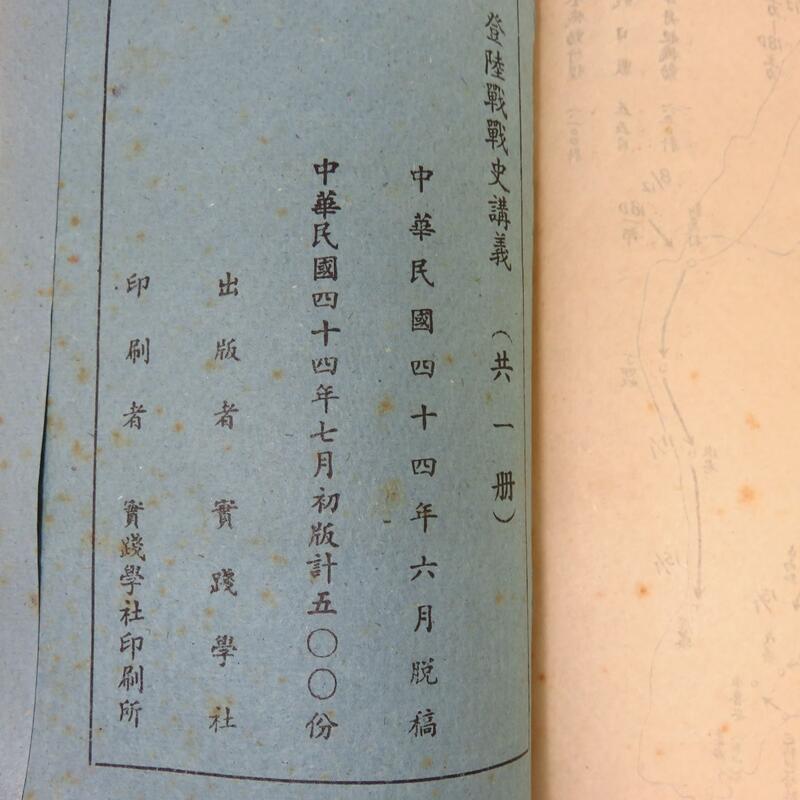 登陸戰戰史講義（共一冊）
中華民國四十四年六月脱稿
中華民國四十四年七月初版計五〇〇份
出版者 實踐學社
印刷者 實踐學社印刷所